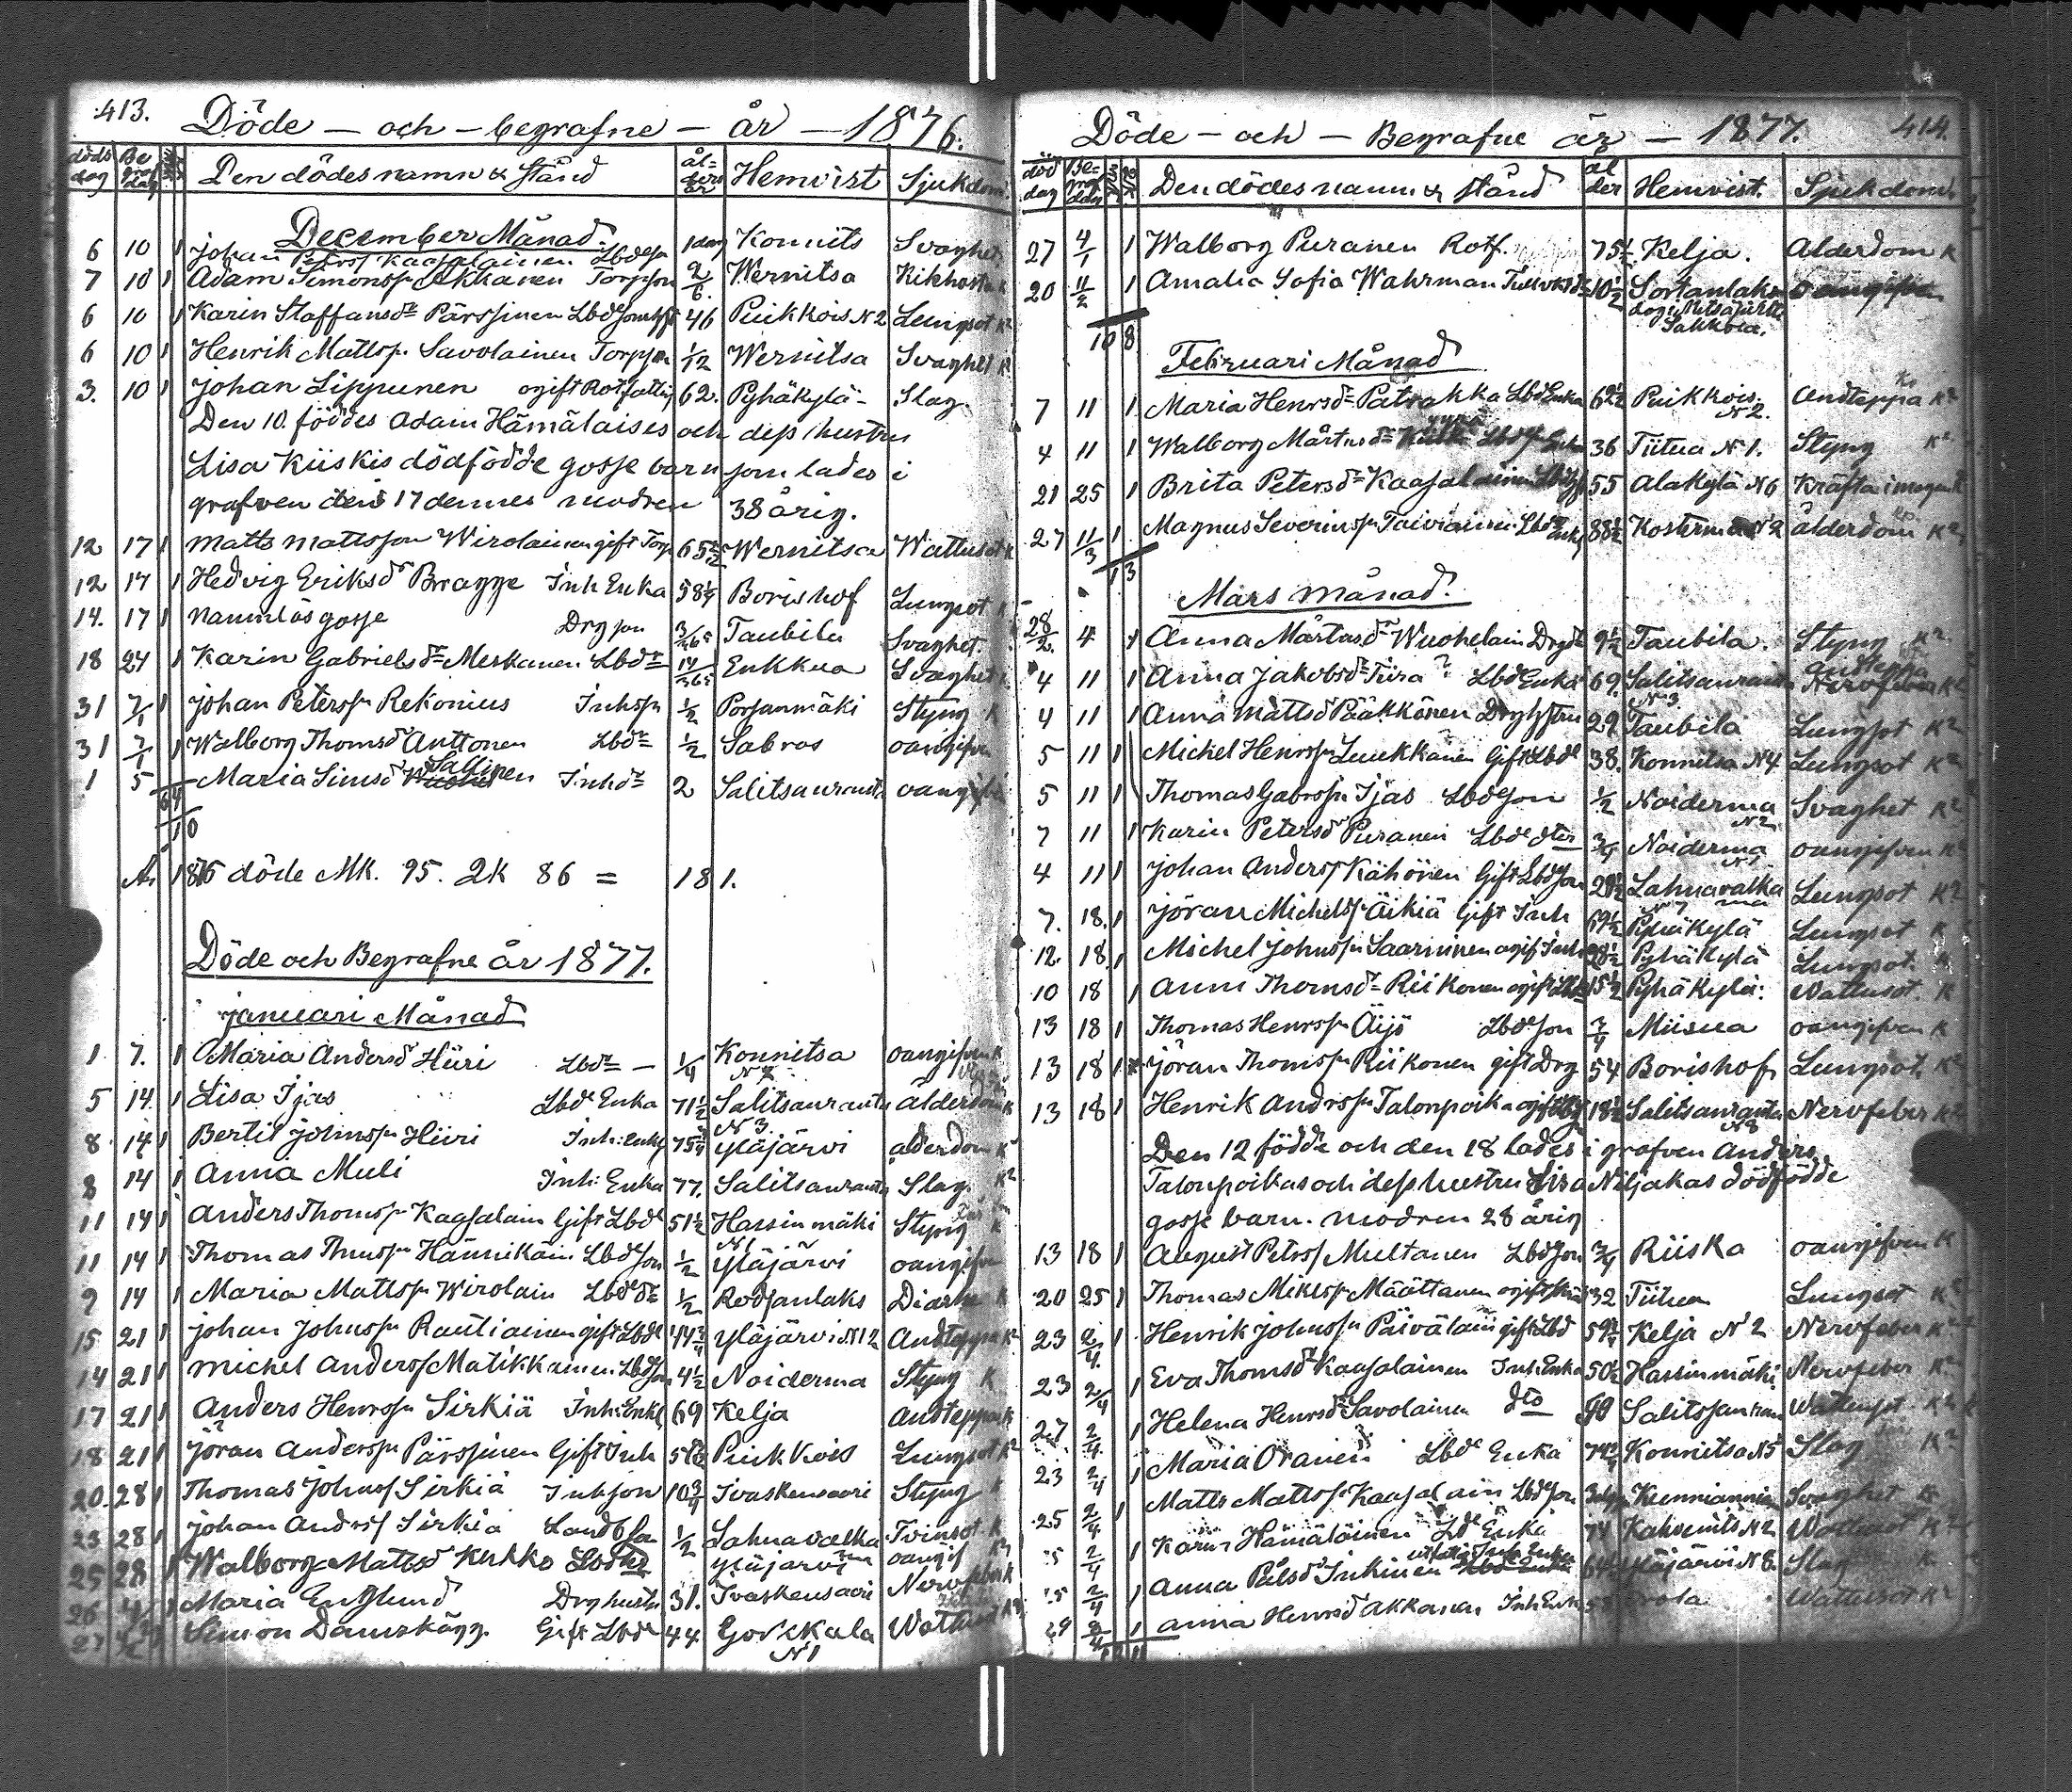 413.
Döde – och – begrafne – år – 1876.
döds dag Be graf dag Den dödes namn & stånd ål- ders år Hemvist Sjukdom
December Månad
6 10 1 Johan Peterss. Kaasalainen Lbdeson 1 dag Konnits Svaghet
7 10 1 Adam Simonss. Akkanen Torpson 2/6. Wernitsa Kikhosta
6 10 1 Karin Staffansdr Pärssinen 46 Puikkois N2 Lungsot K2
6 10 1 Henrik Mattss. Savolainen Torpson 1/12 Wernitsa Svaghet K
3. 10 1 Johan Lippunen ogift Rotfattig 62. Pyhäkylä – Slag
Den 10. föddes Adam Hämäläises och dess hustru
Lisa Kiiskis dödfödde gosse barn som lades i
grafven den 17 dennes modren 38 årig.
12 17 1 Matts Mattsson Wirolainen gift Torp 65 1/2 Wernitsa Wattusot K
12 17 1 Hedvig Eriksdr Bragge Inh Enka 58 1/4 Borishof Lungsot K
14. 17 1 namnlös gosse Drgson 3/365 Taubila Svaghet.
18 24 1 Karin Gabrielsdr Meskanen Lbdr 14/365 Enkkua Svaghet
31 7/1 1 Johan Peterss. Rekonius Inhsn 1/2 Porsanmäki Styng K
31 7/1 1 Walborg Thomsdr Anttonen Lbdr 1/2 Sabros oangifven
1 5 Maria Simsdr Sallinen Inhdr 2 Salitsauranta oangifv
6 4
10
År 1876 döde Mk. 95. 2K 86 = 181.
Döde och Begrafne år 1877.
Januari Månad
1 7. 1 Maria Andersdr Hiiri Lbdr – 1/4 Konnitsa oangifven K
5 14 1 Lisa Ijas Lbde Enka 71 1/2 Salitsauranta N3 ålderdom K
8 14 1 Bertil Johnss. Hiiri Inh: Enkl 75 3/4 Yläjärvi ålderdom K
8 14 1 Anna Muli Inh: Enka 77. Salitsauranta Slag. K2
11 14 1 Anders Thomss. Kaasalain Gift Lbde 51 1/2 Hassinmäki N1 Styng K
11 14 1 Thomas Thmss. Hännikäin Lbdeson 1/2 Yläjärvi oangifven
9 14 1 Maria Mattss. Wirolain Lbdedr 1/2 Rodsanlaks K
15 21 1 Johan Johnss. Rautiainen gift Lbde 44 3/4 Yläjärvi N12 Andteppa K2
14 21 1 Michel Anderss. Matikkainen Lbdson 4 1/2 Noiderma Styng K
17 21 1 Anders Henrss. Sirkiä Inh: Enkl 69 Kelja Andteppa K
18 21 1 Jöran Anderss. Pärssinen Gift Inh Puikkois Lungsot K2
20. 28 1 Thomas Johnss. Sirkiä Inhson 10 3/4 Ivaskensaari Styng K
23 28 1 Johan Andrss. Sirkiä Landbson 1/2 Lahnavalka Tvinsot K
25 28 1 Walborg Mattsdr Kukko Yläjärvi oangif K
26 1 Maria Englund Drghustr. 31. Ivaskensaari Nervfeber K
27 Simon Damskägg Gift Lbde 44. Gorckala N1 Wattusot K2
414.
Döde – och – Begrafne år – 1877.
död dag Be- graf dag Den dödes namn & stånd ål der Hemvist. Sjukdom
27 4/1 1 Walborg Puranen Rotf. 75 1/2 Kelja. Ålderdom K
20 11/2 1 Amalia Sofia Wahrman 10 1/2 Sortanlaks oangifven
Sakkola.
10 8
Februari Månad
7 11 1 Maria Henrsdr Patrakka Lbd Enka 62 1/2 Puikkois N2. Andteppa K2
4 11 1 Walborg Mårtnsdr 36 Tiitua N1. Styng K2
21 25 1 Brita Petersdr Kaasalainen 55 Alakylä N6 Kräfta i magen K
27 11/3 1 Magnus Severinss. Taiviainen Lbde Enkl 88 1/2 Kosterma N2 ålderdom K2
1 3
Mars månad.
28/2 4 1 Anna Mårtnsdr Wuohelain Drgdr 9 1/2 Taubila. Styng K2
4 11 1 Anna Jakobsdr Tiira? Lbd Enka 69. Salitsauranta N3 andteppa K2
4 11 1 Anna Mattsdr Pääkkönen Drghstru 29 Taubila Lungsot K2
5 11 1 Michel Henrss. Luukkanen Gift Lbde 38. Konnitsa N4 Lungsot K2
5 11 1 Thomas Gabrss. Ijas Lbdeson 1/2 Noiderma N2 Svaghet K2
7 11 1 Karin Petersdr Puranen Lbde dter 3/4 Noiderma N1 oangifven K2
4 11 1 Johan Anderss. Kähönen Gift Lbdson 29 1/2 Lahnavalkama Lungsot K2
7. 18. 1 Jöran Michelss. Äikiä Gift Inh 69 1/2 Pyhäkylä Lungsot K
12. 18. 1 Michel Johnss. Saarninen ogift Inh 28 1/2 Pyhäkylä Lungsot. K
10 18 1 Anni Thomsdr Riikonen ogift Lbdr 15 1/2 Pyhäkylä. Wattusot. K
13 18 1 Thomas Henrss. Äijö Lbdeson 3/4 Miisua oangifven K
13 18 1 Jöran Thomss. Riikonen gift Drg 54 Borishof Lungsot. K2
13 18 1 Henrik Andrss. Talonpoika ogift 18 1/2 Salitsauranta N8 Nervfeber K2
Den 12 födde och den 18 lades i grafven Anders
Talonpoikas och dess hustru Lisa Niljakas dödfödde
gosse barn. modren 28 årig
13 18 1 August Petrss. Multanen Lbdson 3/4 Riiska oangifven K
20 25 1 Thomas Mikss. Määttanen ogift 32 Tiitua Lungsot K2
23 2/4. 1 Henrik Johnss. Päiväläin gift Lbd 59 3/4 Kelja N2 Nervfeber K2
23 2/4 1 Eva Thomsdr Kaasalainen Inh: Enka 50 1/2 Hassinmäki Nervfeber K2
27 2/4 1 Helena Henrsdr Savolainen dto Wattusot K2
23 2/4 1 Maria Oranen Lbde Enka 74 3/4 Konnitsa N5 Slag K2
25 2/4 1 Matts Mattss. Kaasalain Lbdson Svaghet K
2/4 1 Karin Hämäläinen Lde Enka 74 Kahvenits N2 Wattusot K2
2/4 1 Anna Pålsdr Inkinen Inh Enka Yläjärvi N8. Slag K
29 2/4 1 Anna Henrsdr Akkanen Inh Enka Wattusot K2